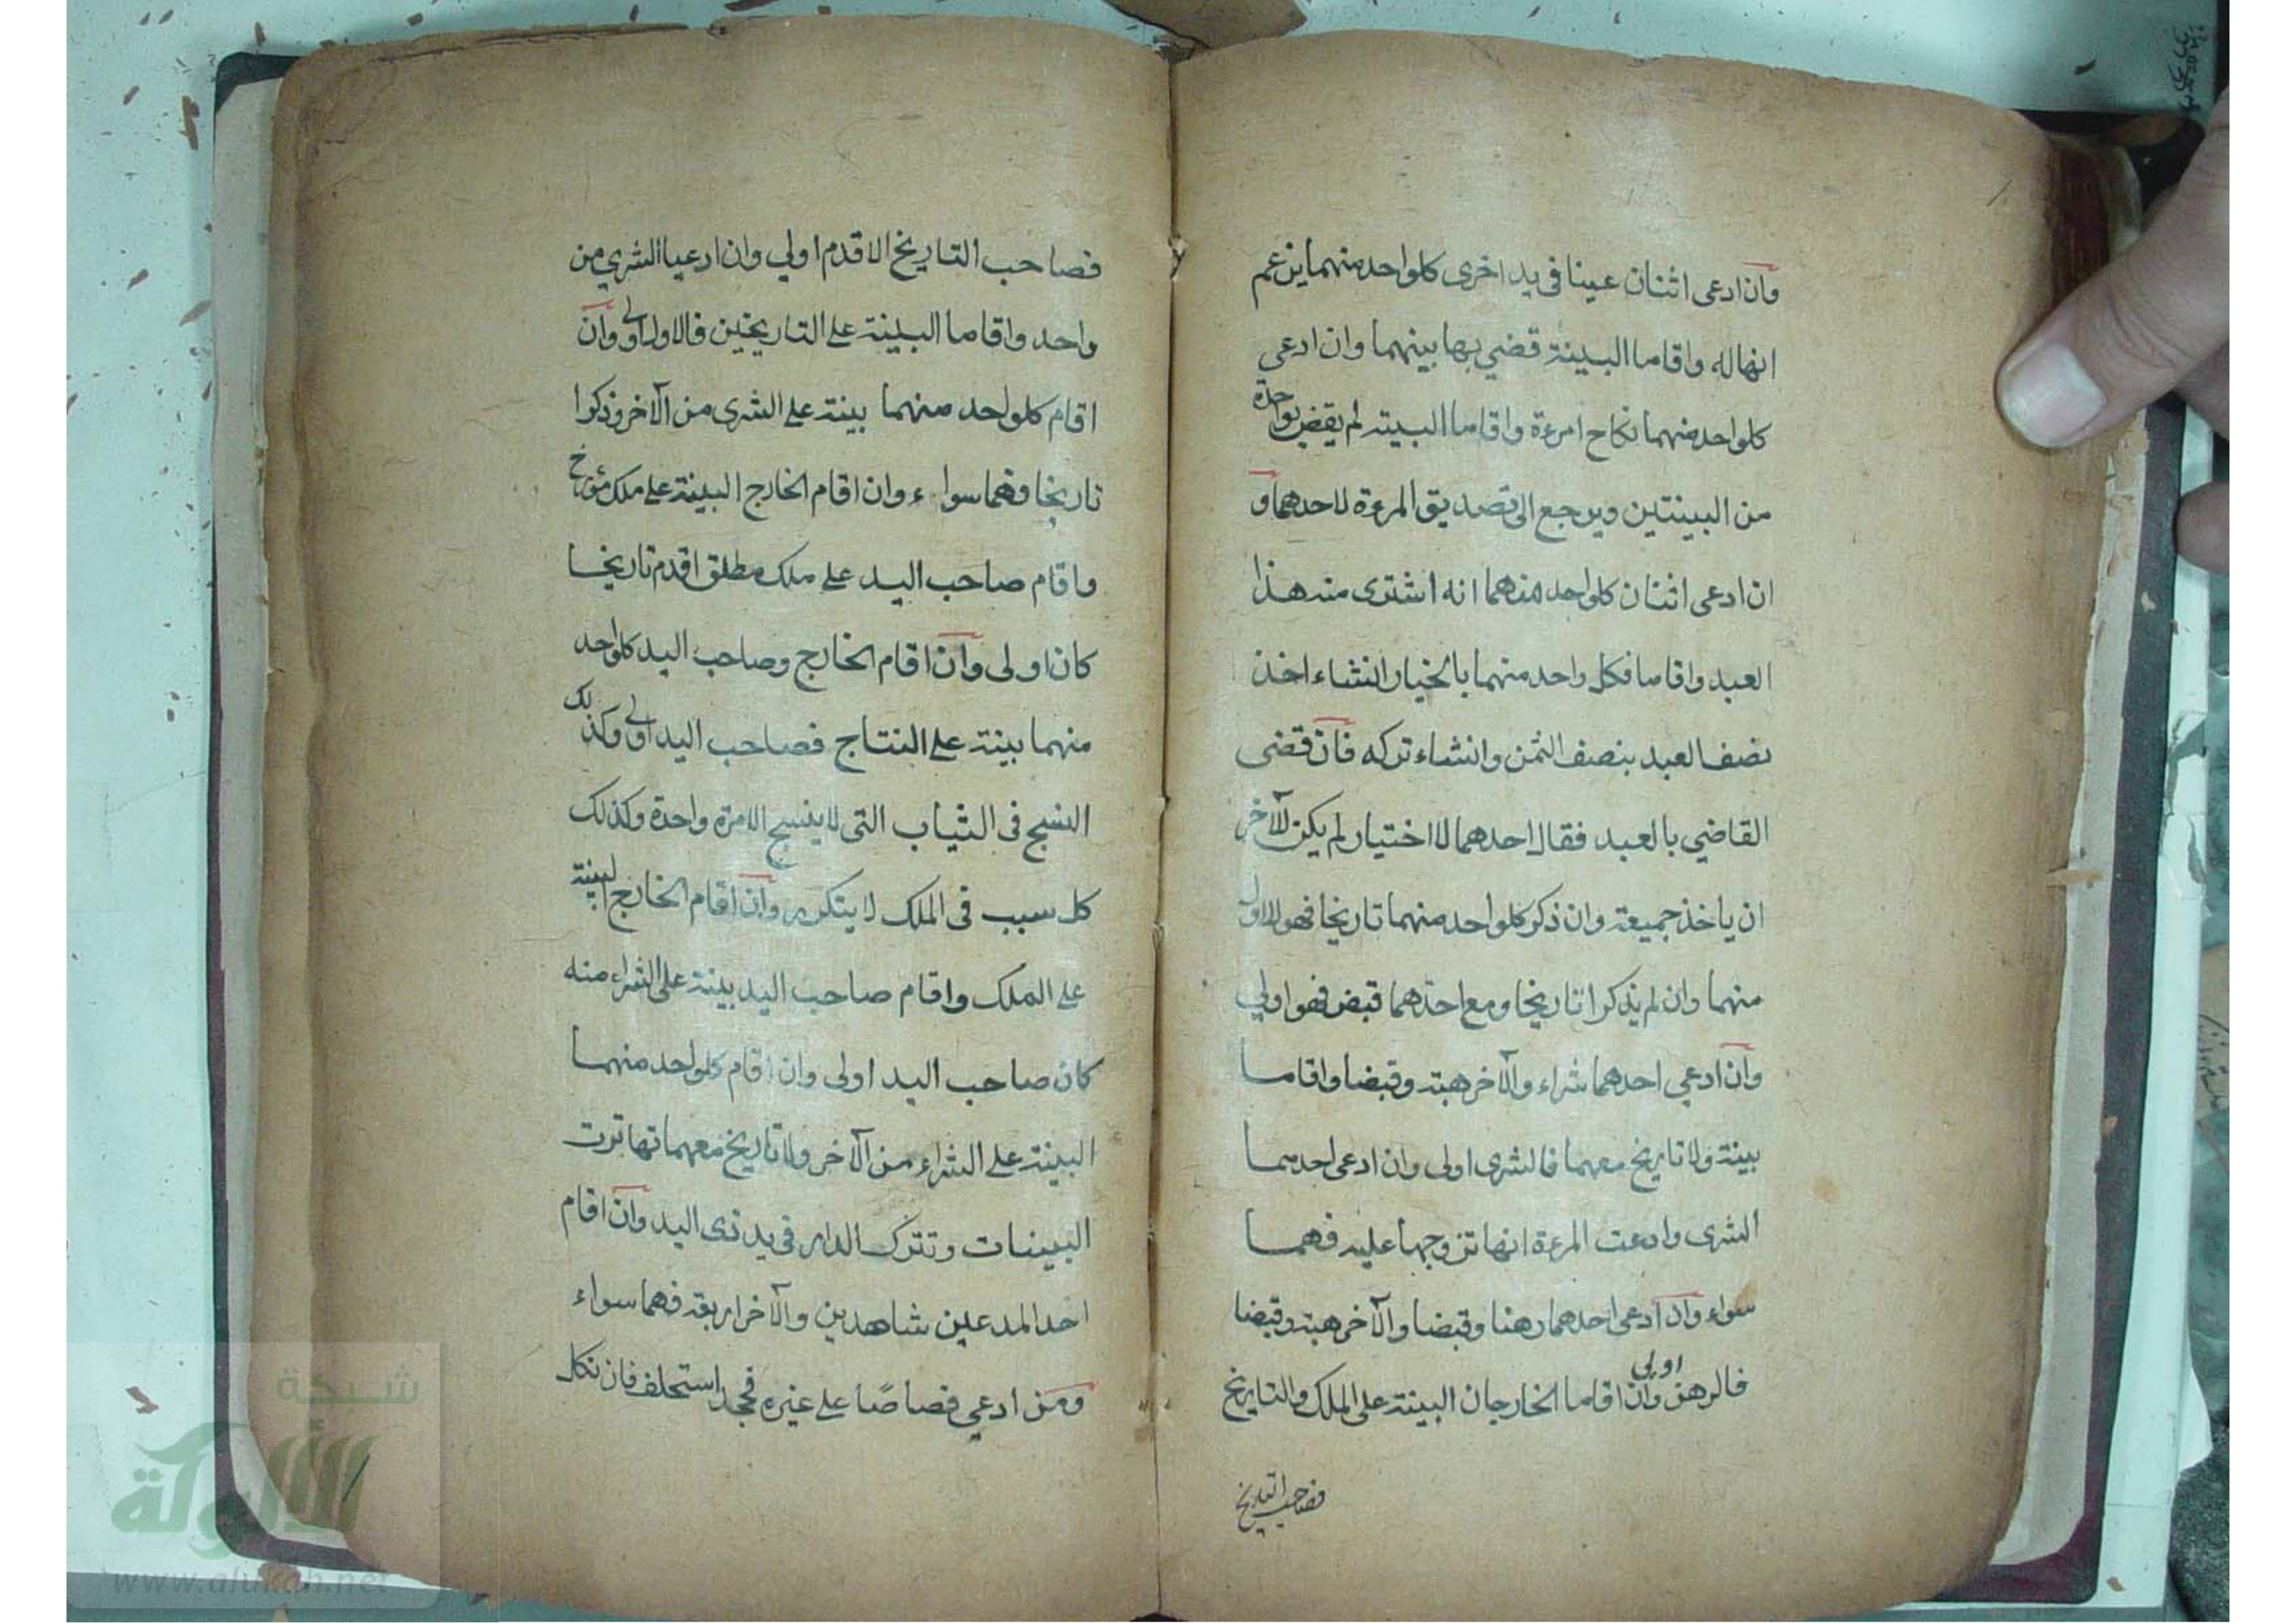 وان ادعى اثنان عينا فى يد اخرى كلواحد منهما يزعم
انها له واقاما البينة قضي بها بينهما وان ادعي
كلواحد منهما نكاح امرءة واقاما البينة لم يقض بواحدة
من البينتين ويرجع الى تصديق المرءة لاحدهما و
ان ادعى اثنان كلواحد منهما انه اشترى منه هذا
العبد واقاما فكل واحد منهما بالخيار انشاء اخذ
نصف العبد بنصف الثمن وانشاء تركه فان قضى
القاضي بالعبد فقال احدهما لا اختيار لم يكن للآخر
ان ياخذ جميعة وان ذكر كلواحد منهما تاريخا فهو للاول
منهما وان لم يذكرا تاريخا ومع احدهما قبض فهو اولي
وان ادعي احدهما شراء والآخر هبة وقبضا واقاما
بينة ولا تاريخ معهما فالشرى اولى وان ادعى احدهما
الشرى وادعت المرءة انها تزوجها عليه فهما
سواء وان ادعى احدهما رهنا وقبضا والآخر هبة وقبضا
فالرهن اولى وان اقاما الخارجان البينة على الملك والتاريخ
فصاحب التاريخ
فصاحب التاريخ الاقدم اولي وان ادعيا الشرى من
واحد واقاما البينة على التاريخين فالاول اولى وان
اقام كلواحد منهما بينة على الشرى من الآخر وذكرا
تاريخا فهما سواء وان اقام الخارج البينة على ملك مؤرخ
واقام صاحب اليد على ملك مطلق اقدم تاريخا
كان اولى وان اقام الخارج وصاحب اليد كلواحد
منهما بينة على النتاج فصاحب اليد اولى وكذلك
النسج فى الثياب التى لا ينسج الا مرة واحدة وكذلك
كل سبب فى الملك لا يتكرر وان اقام الخارج لبينة
على الملك واقام صاحب اليد بينة على الشراء منه
كان صاحب اليد اولى وان اقام كلواحد منهما
البينة على الشراء من الآخر ولا تاريخ معهما تهاترت
البينات وتترك الدار فى يد ذى اليد وان اقام
احد المدعين شاهدين والآخر اربعة فهما سواء
ومن ادعي قصاصًا على غيره فجحد استحلف فان نكل
شبكة
الألوكة
www.alukah.net